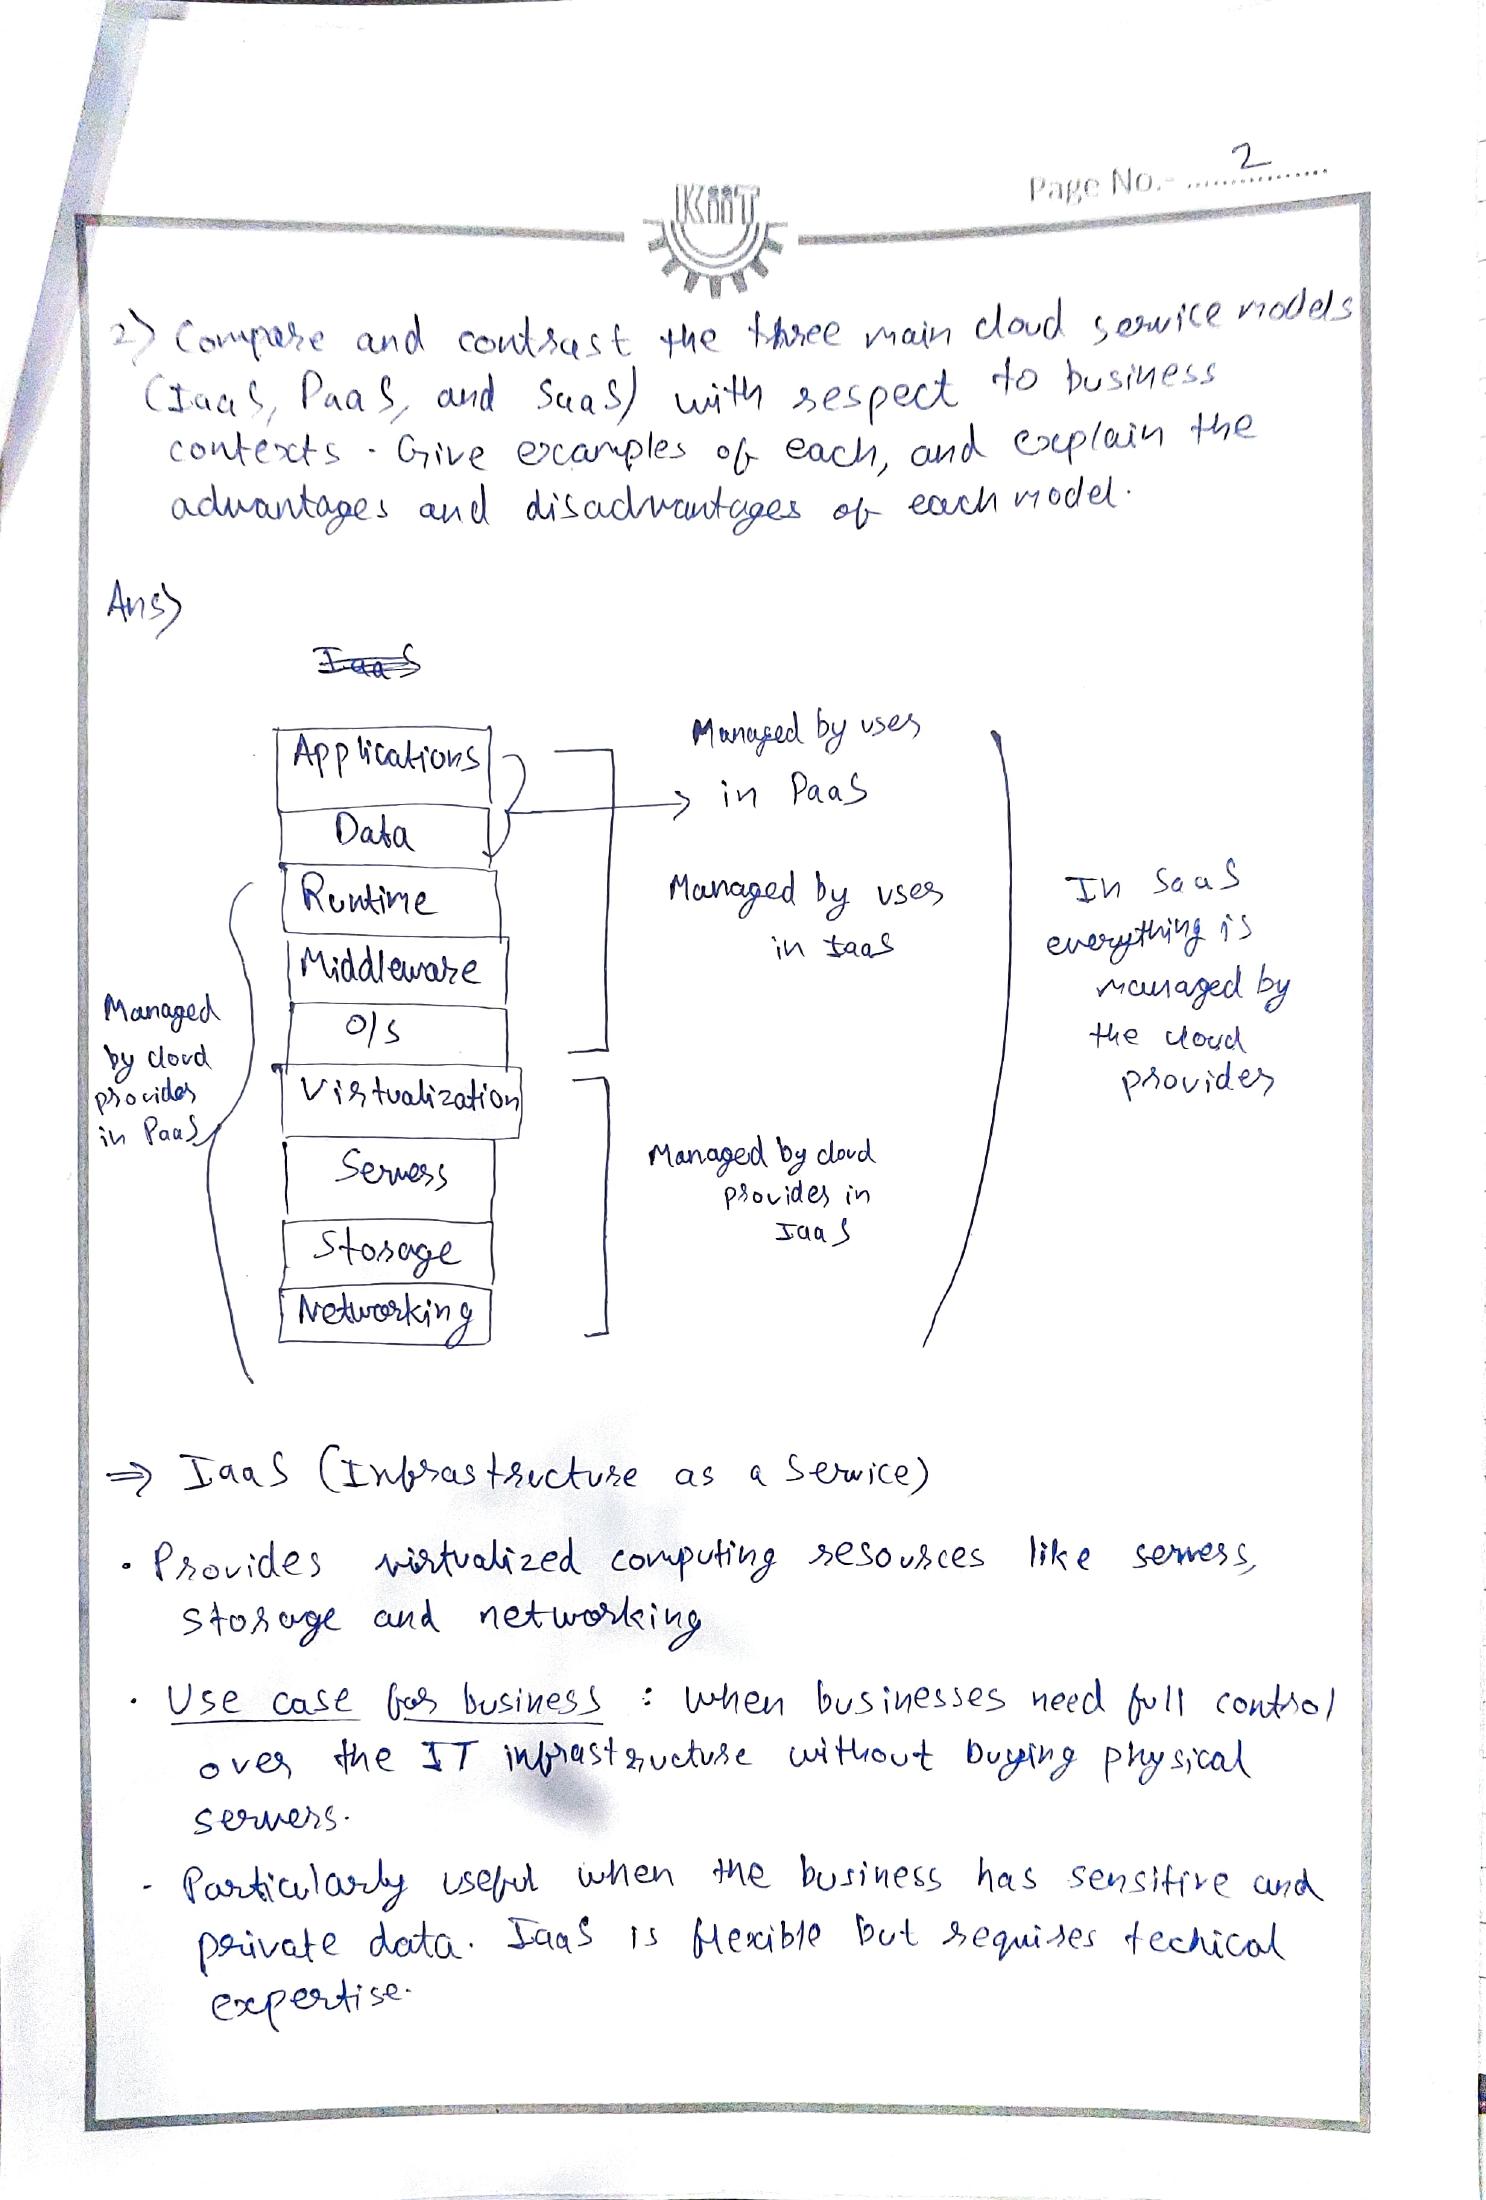 Page No.- 2
KIIT
2) Compare and contrast the three main cloud service models
(IaaS, PaaS, and SaaS) with respect to business
contexts. Give examples of each, and explain the
advantages and disadvantages of each model.
Ans)
IaaS
Applications
Data
Runtime
Middleware
O/S
Virtualization
Servers
Storage
Networking
Managed
by cloud
provider
in PaaS
Managed by user
in PaaS
Managed by user
in IaaS
Managed by cloud
provider in
IaaS
In SaaS
everything is
managed by
the cloud
provider
⇒ IaaS (Infrastructure as a Service)
• Provides virtualized computing resources like servers,
storage and networking
• Use case for business : when businesses need full control
over the IT infrastructure without buying physical
servers.
- Particularly useful when the business has sensitive and
private data. IaaS is flexible but requires techical
expertise.